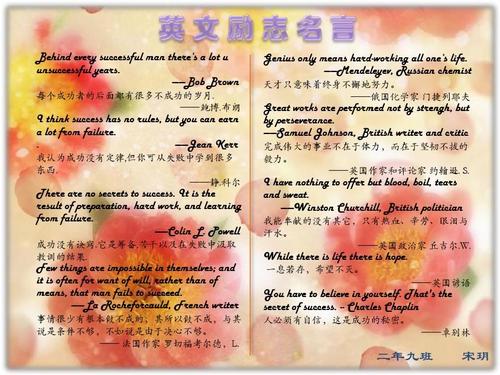 英文励志名言
Behind every successful man there's a lot u
unsuccessful years.
—Bob Brown
每个成功者的后面都有很多不成功的岁月.
——鲍博.布朗
I think success has no rules, but you can earn
a lot from failure.
.
—Jean Kerr
我认为成功没有定律,但你可从失败中学到很多
东西.
——静.科尔
There are no secrets to success. It is the
result of preparation, hard work, and learning
from failure.
—Colin L. Powell
成功没有诀窍.它是筹备,苦干以及在失败中汲取
教训的结果.
Few things are impossible in themselves; and
it is often for want of will, rather than of
means, that man fails to succeed.
—La Rocheforcauld, French writer
事情很少有根本做不成的；其所以做不成，与其
说是条件不够，不如说是由于决心不够。
——法国作家.罗切福考尔德，L.
Genius only means hard-working all one's life.
—Mendeleyev, Russian chemist
天才只意味着终身不懈地努力。
——俄国化学家 门捷列耶夫
Great works are performed not by strengh, but
by perseverance.
—Samuel Johnson, British writer and critic
完成伟大的事业不在于体力，而在于坚韧不拔的
毅力。
——英国作家和评论家 约翰逊. S.
I have nothing to offer but blood, boil, tears
and sweat.
—Winston Churchill, British politician
我能奉献的没有其它，只有热血、辛劳、眼泪与
汗水。
——英国政治家 丘吉尔.W.
While there is life there is hope.
一息若存，希望不灭。
——英国谚语
You have to believe in yourself. That's the
secret of success. -- Charles Chaplin
人必须有自信，这是成功的秘密。
——卓别林
二年九班 宋玥